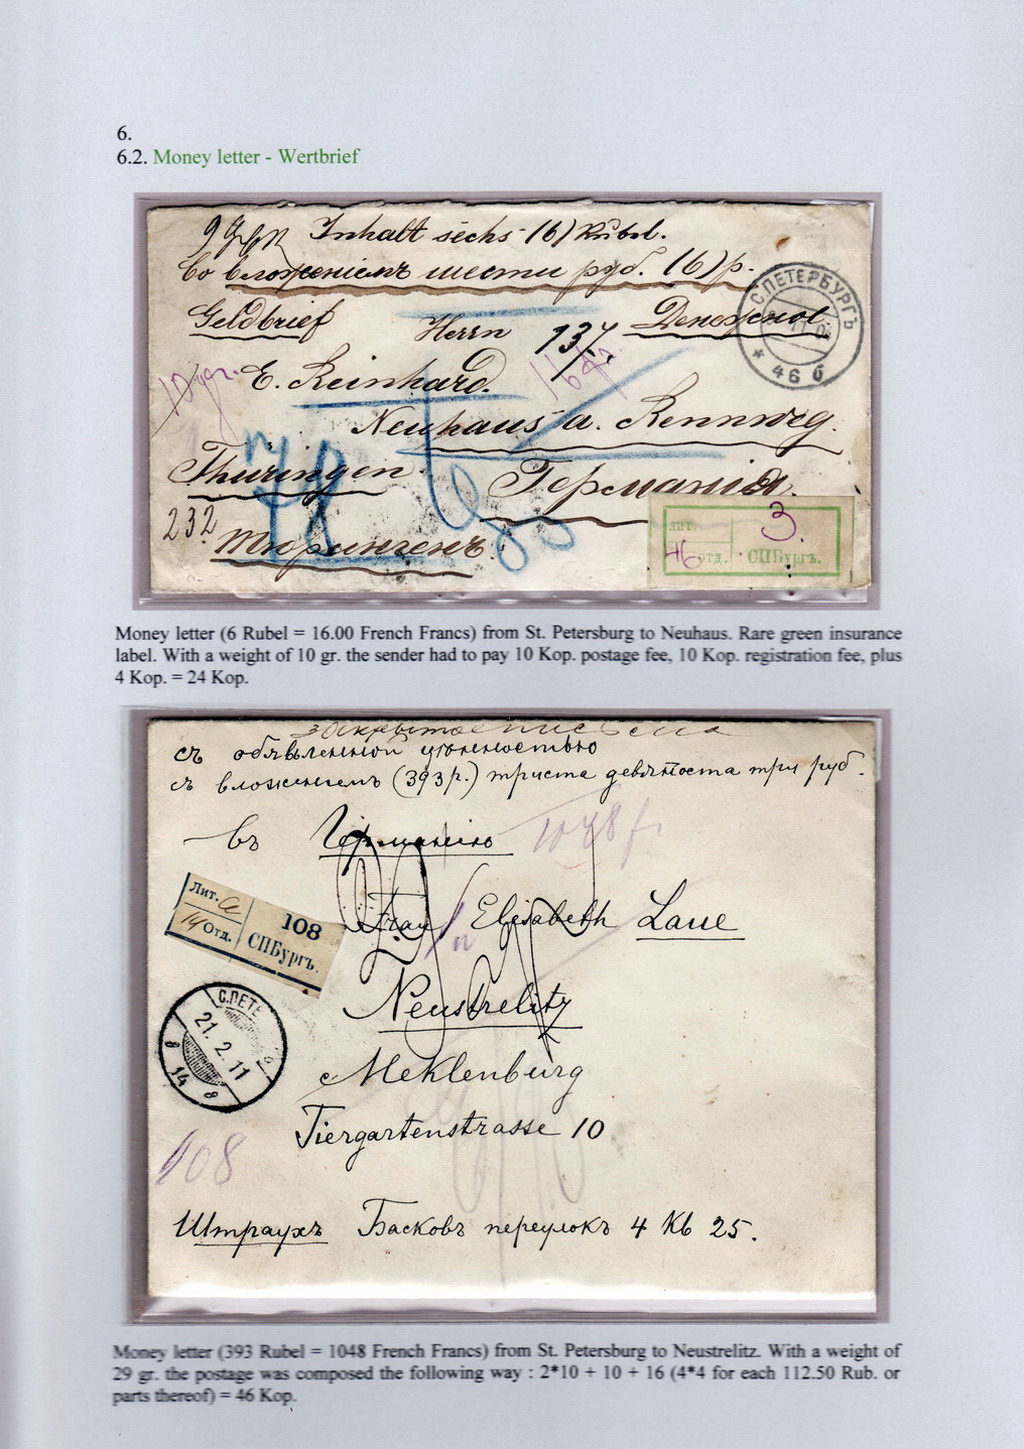 6.
6.2. Money letter - Wertbrief
Inhalt sechs (6) Rubel.
Со вложеніемъ шести руб. (6) р.
Geldbrief Herrn 137 Денежное
10 gr. E. Reinhard. 16 fr.
Neuhaus a. Rennweg.
Thüringen. Германія.
232 Тюрингенъ.
С.ПЕТЕРБУРГЪ
46 б
лит. 3.
46 отд. СПБургъ.
Money letter (6 Rubel = 16.00 French Francs) from St. Petersburg to Neuhaus. Rare green insurance
label. With a weight of 10 gr. the sender had to pay 10 Kop. postage fee, 10 Kop. registration fee, plus
4 Kop. = 24 Kop.
закрытое письмо
съ объявленной цѣнностью
съ вложеніемъ (393 р.) триста девяноста три руб.
въ Германію 1048 fr
Frau Elisabeth Laue
Лит. a 108
14 Отд. СПБургъ.
Neustrelitz
С.ПЕТЕ
21.2.11
14 8
Meklenburg
Tiergartenstrasse 10
108
Штраухъ Басковъ переулокъ 4 Кв 25.
Money letter (393 Rubel = 1048 French Francs) from St. Petersburg to Neustrelitz. With a weight of
29 gr. the postage was composed the following way : 2*10 + 10 + 16 (4*4 for each 112.50 Rub. or
parts thereof) = 46 Kop.